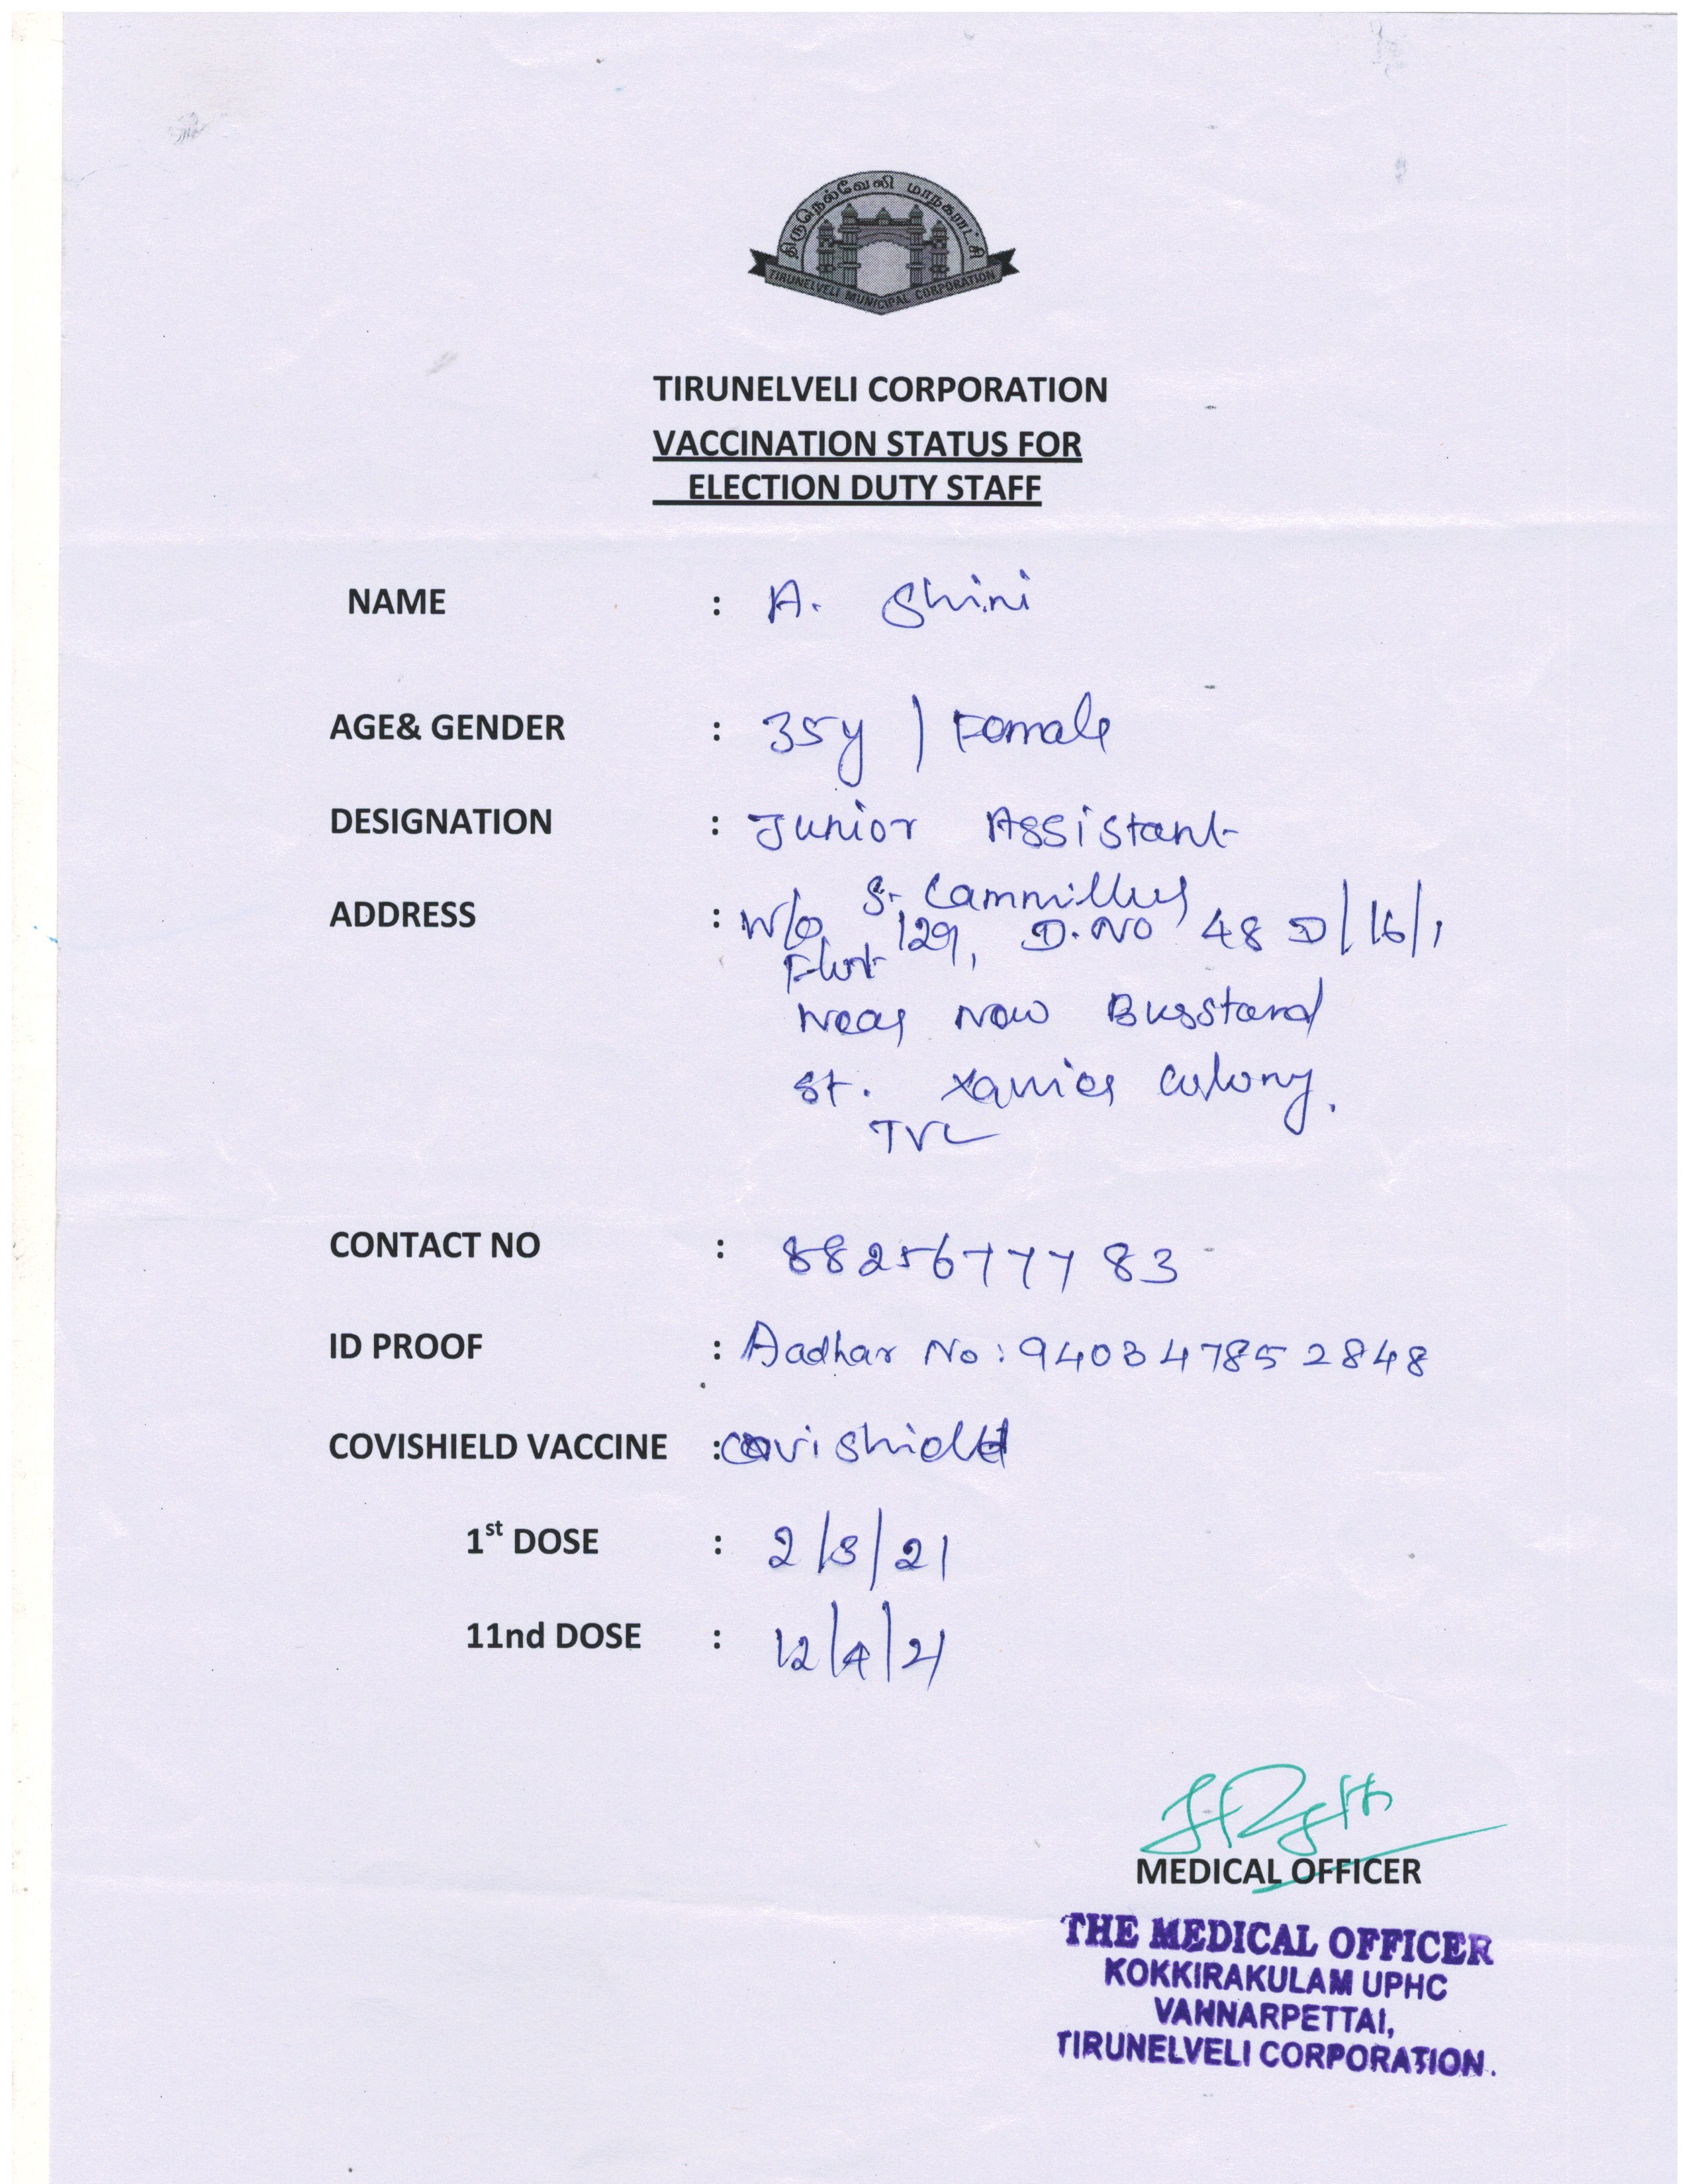 திருநெல்வேலி மாநகராட்சி
TIRUNELVELI MUNICIPAL CORPORATION
TIRUNELVELI CORPORATION
VACCINATION STATUS FOR
ELECTION DUTY STAFF
NAME : A. Shini
AGE& GENDER : 35y / Female
DESIGNATION : Junior Assistant
ADDRESS : W/o S. Cammillus
Flat 129, D.NO 48 D/16/1
Near New Busstand
St. Xavier colony.
TVL
CONTACT NO : 8825677783
ID PROOF : Aadhar No: 940347852848
COVISHIELD VACCINE : covishield
1st DOSE : 2/3/21
11nd DOSE : 12/4/21
MEDICAL OFFICER
THE MEDICAL OFFICER
KOKKIRAKULAM UPHC
VANNARPETTAI,
TIRUNELVELI CORPORATION.